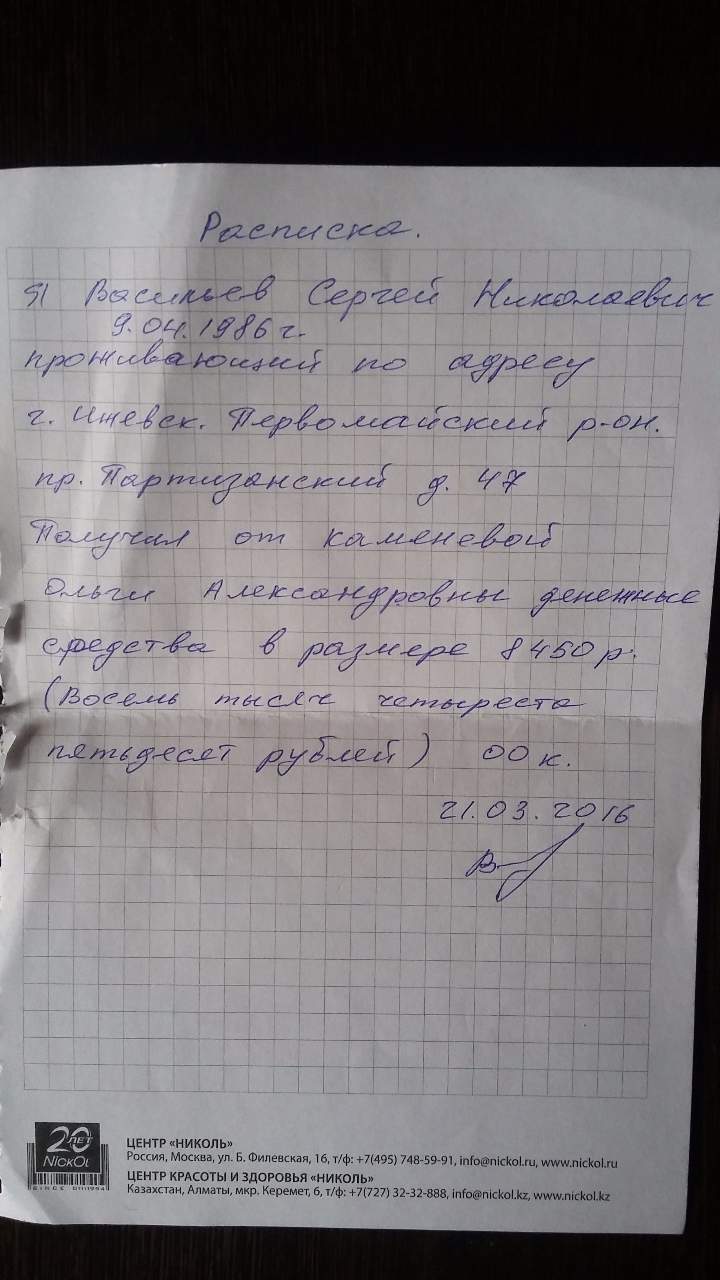 Расписка.
Я Васильев Сергей Николаевич
9.04.1986 г.
проживающий по адресу
г. Ижевск. Первомайский р-он.
пр. Партизанский д. 47
Получил от каменевой
Ольги Александровны денежные
средства в размере 8450 р.
(Восемь тысяч четыреста
пятьдесят рублей) 00 к.
21.03.2016
20 ЛЕТ
NickOl
SINCE 01111994
ЦЕНТР «НИКОЛЬ»
Россия, Москва, ул. Б. Филевская, 16, т/ф: +7(495) 748-59-91, info@nickol.ru, www.nickol.ru
ЦЕНТР КРАСОТЫ И ЗДОРОВЬЯ «НИКОЛЬ»
Казахстан, Алматы, мкр. Керемет, 6, т/ф: +7(727) 32-32-888, info@nickol.kz, www.nickol.kz